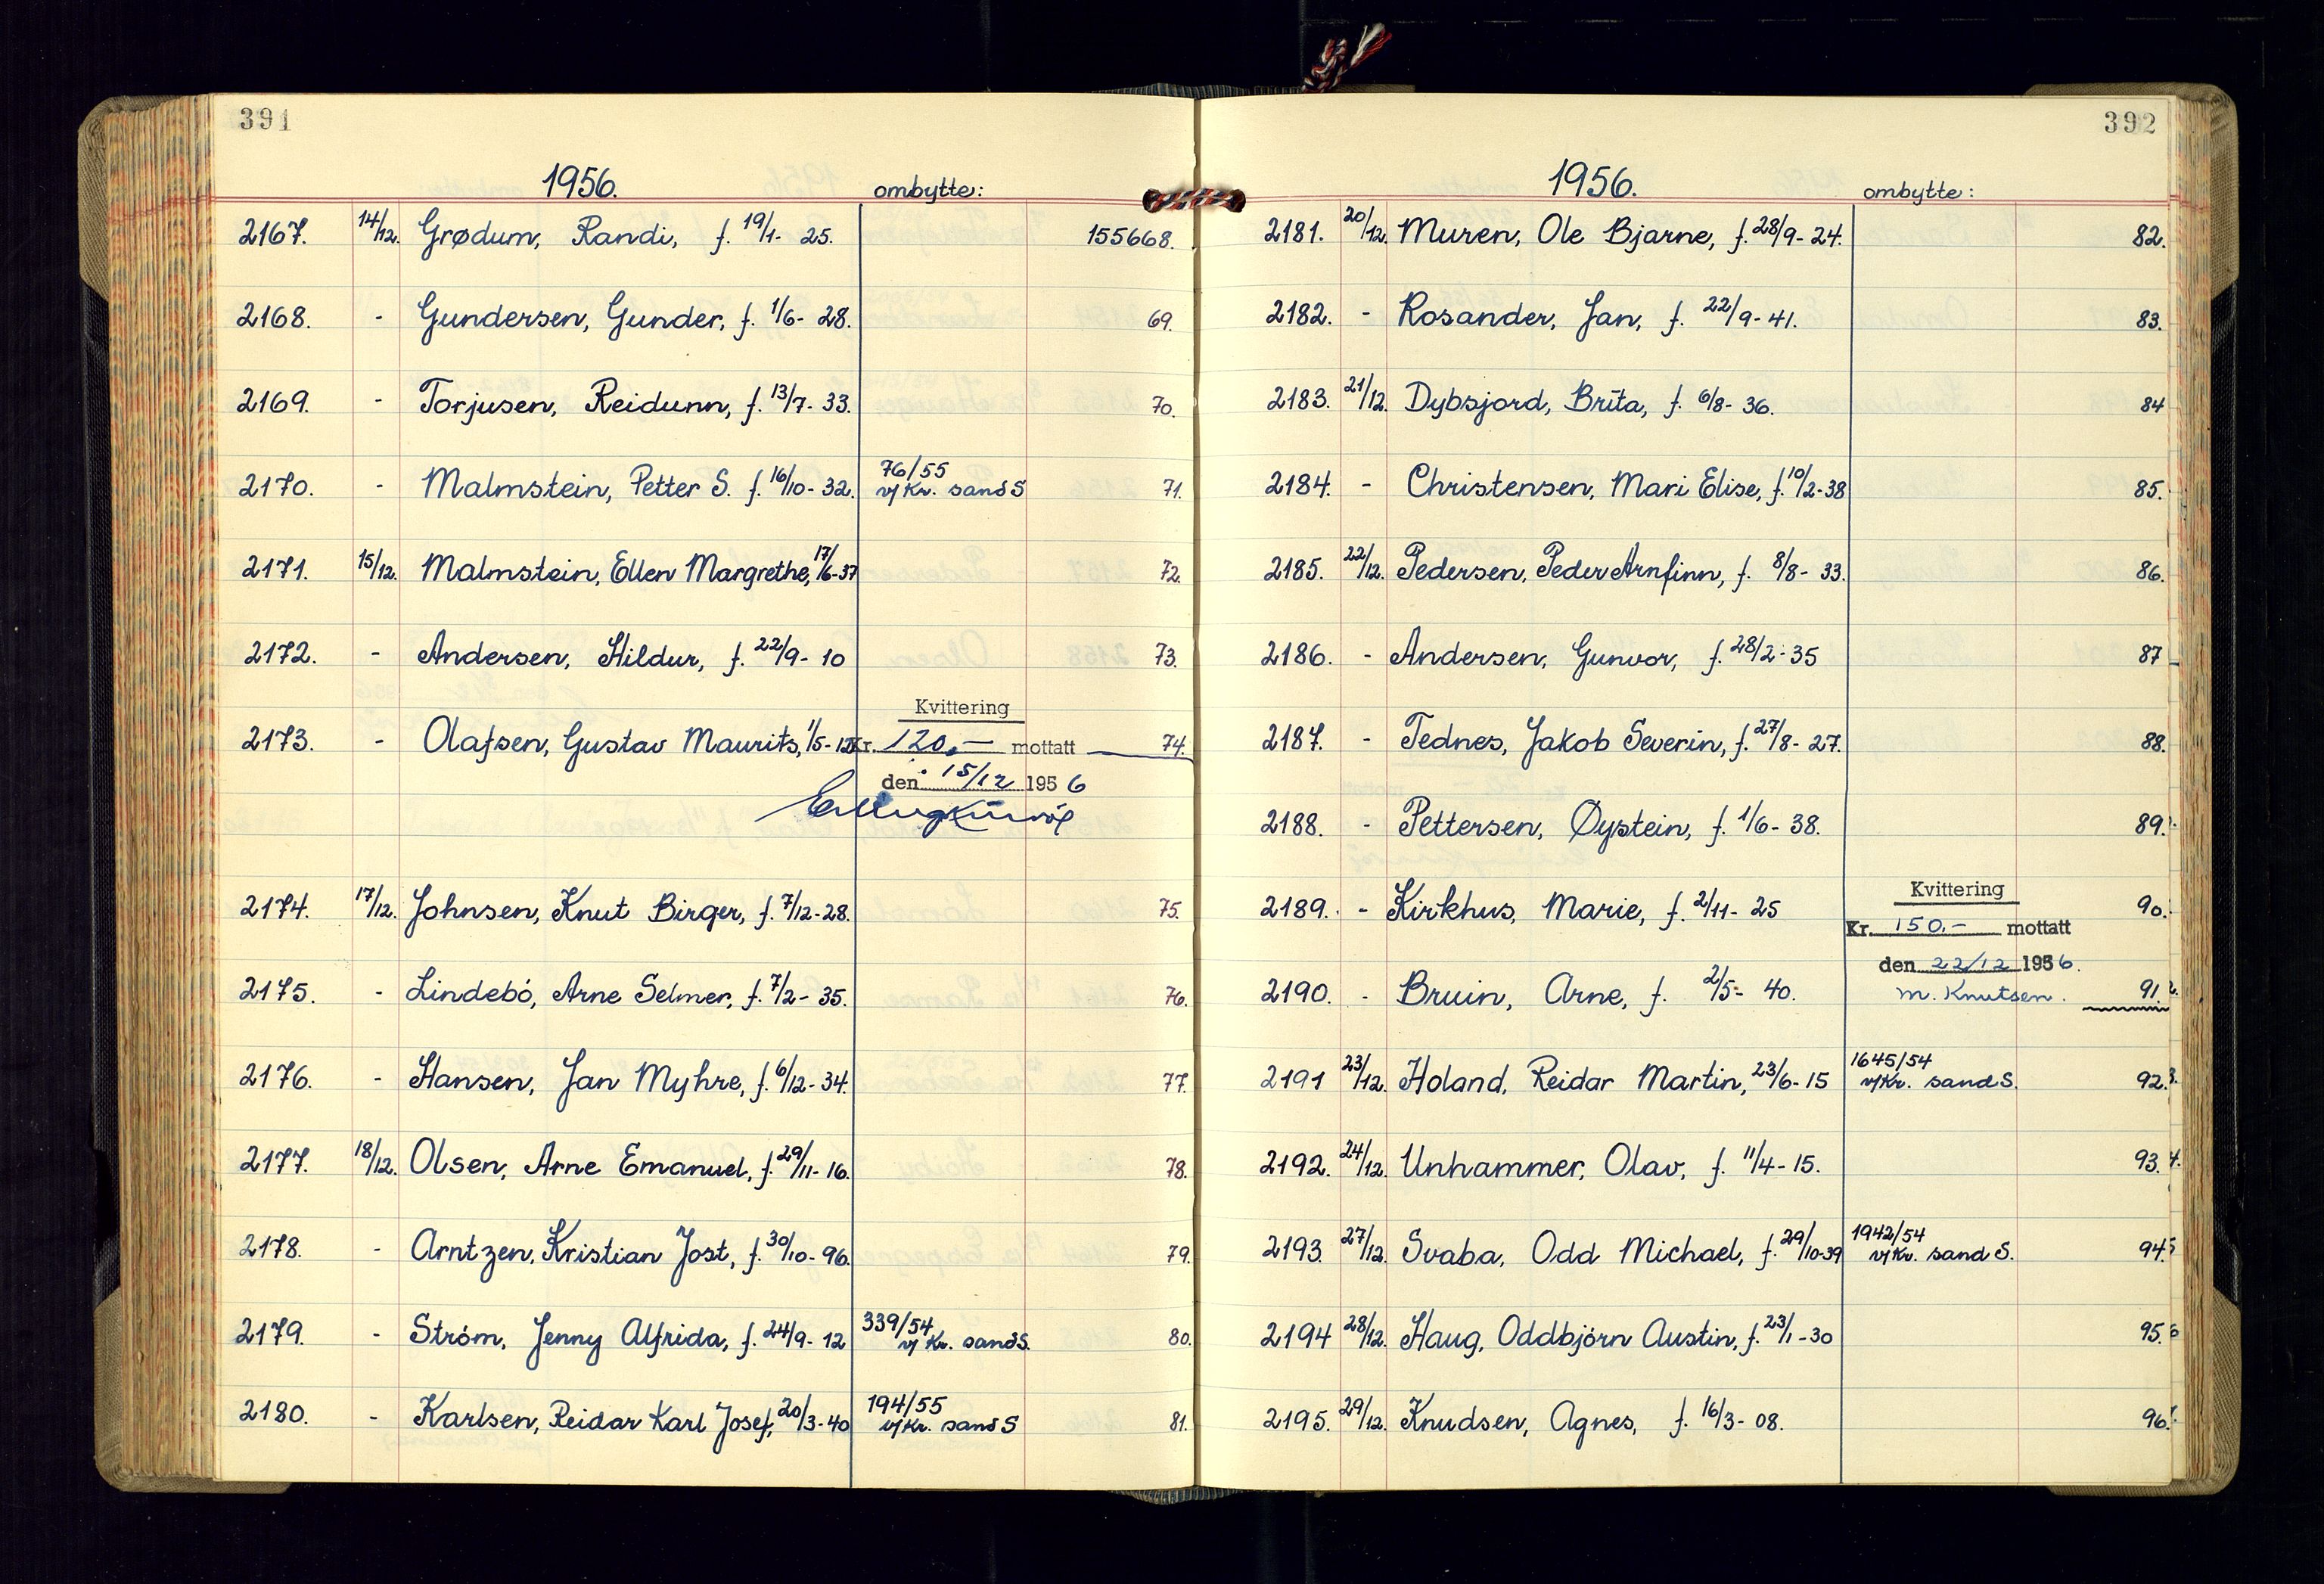 391
1956. ombytte:
2167. 14/12. Grødum, Randi, f. 19/1- 25. 155668.
2168. - Gundersen, Gunder, f. 1/6- 28. 69.
2169. - Torjusen, Reidunn, f. 13/7- 33. 70.
76/55
2170. - Malmstein, Petter S. f. 16/10- 32. v/ Kr. sand S 71.
2171. 15/12. Malmstein, Ellen Margrethe, 17/6-37 72.
2172. - Andersen, Hildur, f. 22/9- 10 73.
Kvittering
2173. - Olafsen, Gustav Maurits, 1/5- Kr. 120,- mottatt 74.
den 15/12 1956
2174. 17/12. Johnsen, Knut Birger, f. 7/12-28. 75.
2175. - Lindebö, Arne Selmer, f. 7/2- 35. 76.
2176. - Hansen, Jan Myhre, f. 6/12- 34. 77.
2177. 18/12. Olsen, Arne Emanuel, f. 29/11- 16. 78.
2178. - Arntzen, Kristian Jost, f. 30/10- 96. 79.
339/54
2179. - Ström, Jenny Alfrida, f. 24/9- 12 v/ Kr. sand S. 80.
194/55
2180. - Karlsen, Reidar Karl Josef, 20/3-40 v/Kr. sand S 81.
392
1956. ombytte:
2181. 20/12. Muren, Ole Bjarne, f. 28/9- 24. 82.
2182. - Rosander, Jan, f. 22/9- 41. 83.
2183. 21/12. Dybsjord, Brita, f. 6/8- 36. 84
2184. - Christensen, Mari Elise, f. 10/2-38 85.
2185. 22/12. Pedersen, Peder Arnfinn, f. 8/8- 33. 86.
2186. - Andersen, Gunvor, f. 28/2-35 87
2187. - Tednes, Jakob Severin, f. 27/8- 27. 88.
2188. - Pettersen, Øystein, f. 1/6- 38. 89.
Kvittering
2189. - Kirkhus, Marie, f. 2/11- 25 90.
Kr. 150.- mottatt
den 22/12 1956.
2190. - Bruin, Arne, f. 2/5- 40. m. Knutsen. 91.
1645/54
2191 23/12. Holand, Reidar Martin, 23/6-15 v/Kr. sand S. 92.
2192. 24/12. Unhammer, Olav, f. 11/4- 15. 93.
1942/54
2193. 27/12. Svaba, Odd Michael, f. 29/10-39 v/Kr. sand S. 94.
2194 28/12. Haug, Oddbjörn Austin, f. 23/1-30 95.
2195. 29/12. Knudsen, Agnes, f. 16/3- 08. 96.